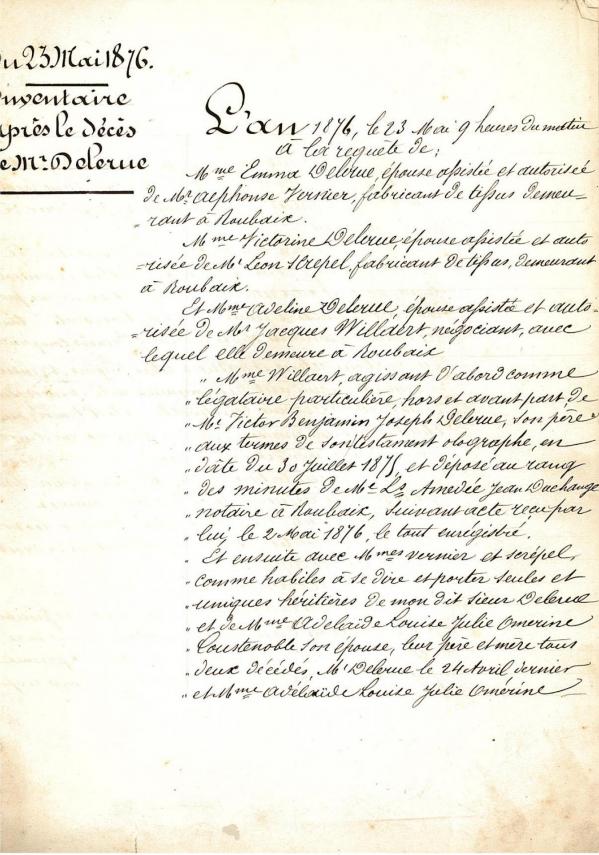 u 23 Mai 1876.
nventaire
après le décès
e Mr. Delerue
L'an 1876, le 23 Mai 9 heures du matin
A la requête de;
Mme Emma Delerue, épouse assistée et autorisée
de Mr. Alphonse Vernier, fabricant de tissus demeu-
-rant à Roubaix.
Mme Victorine Delerue, épouse assistée et auto
=risée de Mr Léon Screpel, fabricant de tissus, demeurant
à Roubaix.
Et Mme Adeline Delerue, épouse assistée et auto-
=risée de Mr Jacques Willaert, négociant, avec
lequel elle demeure à Roubaix
" Mme Willaert, agissant d'abord comme
" légataire particulière, hors et avant part de
" Mr. Victor Benjamin Joseph Delerue, son père
" aux termes de son testament olographe, en
" date du 30 Juillet 1875, et déposé au rang
" des minutes de Me Ls Amedée Jean Duchange
" notaire à Roubaix, suivant acte reçu par
" lui, le 2 Mai 1876, le tout enrégistré.
" Et ensuite avec Mmes Vernier et Scrépel,
" comme habiles à se dire et porter seules et
" uniques héritières de mon dit sieur Delerue
" et de Mme Adelaïde Louise Julie Omerine
" Coustenoble son épouse, leur père et mère tous
" deux décédés, Mr Delerue le 24 Avril dernier
" et Mme Adélaïde Louise Julie Omérine